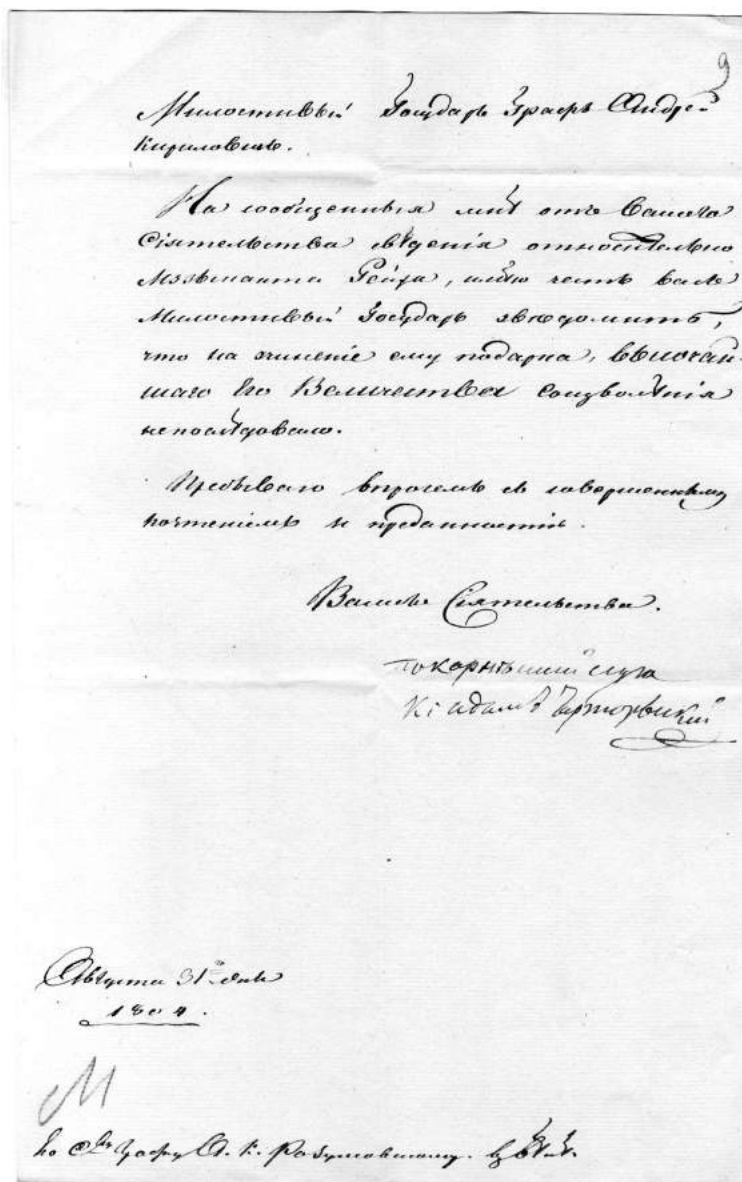 9
Милостивый Государь Графъ Андрей
Кириловичь.
На сообщенныя мнѣ отъ Вашего
Сіятельства свѣденія относительно
Музыканта Рейха, имѣю честь васъ
Милостивый Государь уведомить,
что на учиненіе ему подарка, высочай-
шаго Его Величества соизволѣнія
непослѣдовало.
Пребываю впрочемъ съ совершеннымъ
почтеніемъ и преданностію.
Вашего Сіятельства.
покорнѣйшій слуга
Кс Адамъ Чарторыскій
Августа 31го дня
1804.
М
Его Сву Графу А. К. Разумовскому.